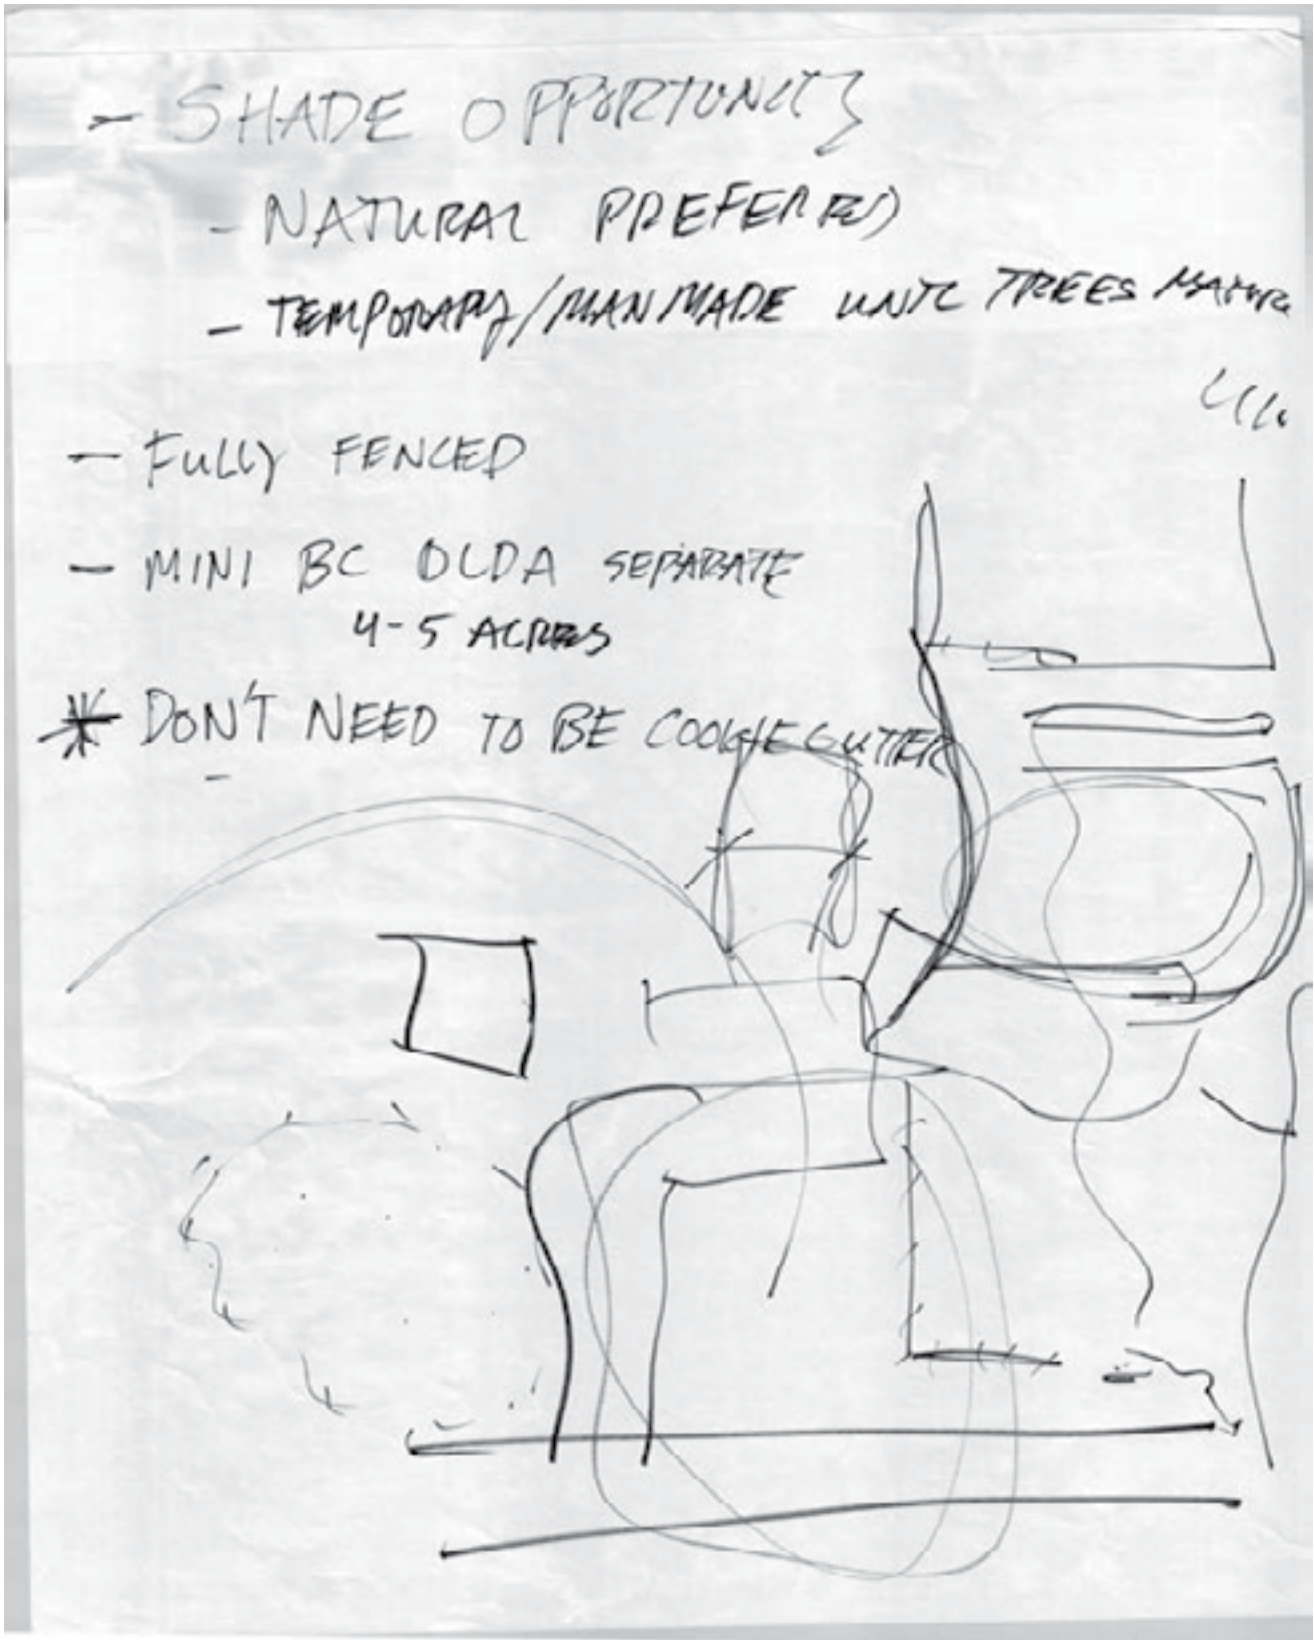 - SHADE OPPORTUNITY
- NATURAL PREFERRED
- TEMPORARY/MANMADE UNTIL TREES MATURE
- FULLY FENCED
- MINI BC OLDA SEPARATE
4-5 ACRES
* DON'T NEED TO BE COOKIE CUTTER